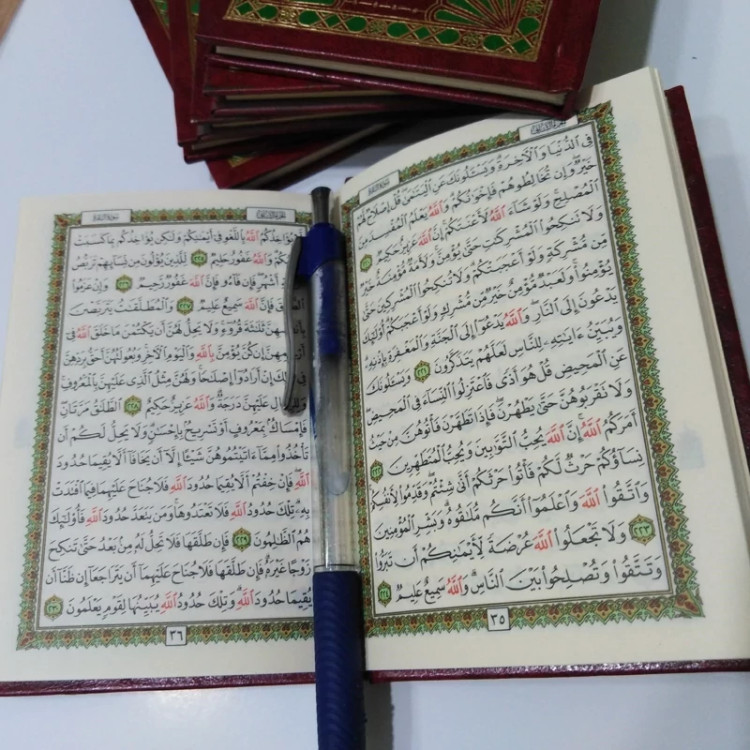 سُورَةُ البَقَرَةِ
الجُزْءُ الثَّانِي
فِي الدُّنْيَا وَالْآخِرَةِ وَيَسْـَٔلُونَكَ عَنِ الْيَتَٰمَىٰ قُلْ إِصْلَاحٌ لَّهُمْ
خَيْرٌ وَإِن تُخَالِطُوهُمْ فَإِخْوَٰنُكُمْ وَاللَّهُ يَعْلَمُ الْمُفْسِدَ مِنَ
الْمُصْلِحِ وَلَوْ شَآءَ اللَّهُ لَأَعْنَتَكُمْ إِنَّ اللَّهَ عَزِيزٌ حَكِيمٌ ٢٢٠
وَلَا تَنكِحُوا الْمُشْرِكَٰتِ حَتَّىٰ يُؤْمِنَّ وَلَأَمَةٌ مُّؤْمِنَةٌ خَيْرٌ
مِّن مُّشْرِكَةٍ وَلَوْ أَعْجَبَتْكُمْ وَلَا تُنكِحُوا الْمُشْرِكِينَ حَتَّىٰ
يُؤْمِنُوا وَلَعَبْدٌ مُّؤْمِنٌ خَيْرٌ مِّن مُّشْرِكٍ وَلَوْ أَعْجَبَكُمْ أُو۟لَٰٓئِكَ
يَدْعُونَ إِلَى النَّارِ وَاللَّهُ يَدْعُوٓا إِلَى الْجَنَّةِ وَالْمَغْفِرَةِ بِإِذْنِهِ
وَيُبَيِّنُ ءَايَٰتِهِ لِلنَّاسِ لَعَلَّهُمْ يَتَذَكَّرُونَ ٢٢١ وَيَسْـَٔلُونَكَ
عَنِ الْمَحِيضِ قُلْ هُوَ أَذًى فَاعْتَزِلُوا النِّسَآءَ فِي الْمَحِيضِ
وَلَا تَقْرَبُوهُنَّ حَتَّىٰ يَطْهُرْنَ فَإِذَا تَطَهَّرْنَ فَأْتُوهُنَّ مِنْ حَيْثُ
أَمَرَكُمُ اللَّهُ إِنَّ اللَّهَ يُحِبُّ التَّوَّٰبِينَ وَيُحِبُّ الْمُتَطَهِّرِينَ ٢٢٢
نِسَآؤُكُمْ حَرْثٌ لَّكُمْ فَأْتُوا حَرْثَكُمْ أَنَّىٰ شِئْتُمْ وَقَدِّمُوا لِأَنفُسِكُمْ
وَاتَّقُوا اللَّهَ وَاعْلَمُوٓا أَنَّكُم مُّلَٰقُوهُ وَبَشِّرِ الْمُؤْمِنِينَ
٢٢٣ وَلَا تَجْعَلُوا اللَّهَ عُرْضَةً لِّأَيْمَٰنِكُمْ أَن تَبَرُّوا
وَتَتَّقُوا وَتُصْلِحُوا بَيْنَ النَّاسِ وَاللَّهُ سَمِيعٌ عَلِيمٌ ٢٢٤
٣٥
الجُزْءُ الثَّانِي
سُورَةُ البَقَرَةِ
يُؤَاخِذُكُمُ اللَّهُ بِاللَّغْوِ فِيٓ أَيْمَٰنِكُمْ وَلَٰكِن يُؤَاخِذُكُم بِمَا كَسَبَتْ
وَاللَّهُ غَفُورٌ حَلِيمٌ ٢٢٥ لِّلَّذِينَ يُؤْلُونَ مِن نِّسَآئِهِمْ تَرَبُّصُ
أَشْهُرٍ فَإِن فَآءُو فَإِنَّ اللَّهَ غَفُورٌ رَّحِيمٌ ٢٢٦ وَإِنْ عَزَمُوا
فَإِنَّ اللَّهَ سَمِيعٌ عَلِيمٌ ٢٢٧ وَالْمُطَلَّقَٰتُ يَتَرَبَّصْنَ
بِأَنفُسِهِنَّ ثَلَٰثَةَ قُرُوٓءٍ وَلَا يَحِلُّ لَهُنَّ أَن يَكْتُمْنَ مَا خَلَقَ اللَّهُ فِيٓ
إِن كُنَّ يُؤْمِنَّ بِاللَّهِ وَالْيَوْمِ الْآخِرِ وَبُعُولَتُهُنَّ أَحَقُّ بِرَدِّهِنَّ
ذَٰلِكَ إِنْ أَرَادُوٓا إِصْلَٰحًا وَلَهُنَّ مِثْلُ الَّذِي عَلَيْهِنَّ بِالْمَعْرُوفِ
عَلَيْهِنَّ دَرَجَةٌ وَاللَّهُ عَزِيزٌ حَكِيمٌ ٢٢٨ الطَّلَٰقُ مَرَّتَانِ
فَإِمْسَاكٌۢ بِمَعْرُوفٍ أَوْ تَسْرِيحٌۢ بِإِحْسَٰنٍ وَلَا يَحِلُّ لَكُمْ أَن
تَأْخُذُوا مِمَّآ ءَاتَيْتُمُوهُنَّ شَيْـًٔا إِلَّآ أَن يَخَافَآ أَلَّا يُقِيمَا حُدُودَ
اللَّهِ فَإِنْ خِفْتُمْ أَلَّا يُقِيمَا حُدُودَ اللَّهِ فَلَا جُنَاحَ عَلَيْهِمَا فِيمَا افْتَدَتْ
بِهِ تِلْكَ حُدُودُ اللَّهِ فَلَا تَعْتَدُوهَا وَمَن يَتَعَدَّ حُدُودَ اللَّهِ فَأُو۟لَٰٓئِكَ
هُمُ الظَّٰلِمُونَ ٢٢٩ فَإِن طَلَّقَهَا فَلَا تَحِلُّ لَهُ مِنۢ بَعْدُ حَتَّىٰ تَنكِحَ
زَوْجًا غَيْرَهُ فَإِن طَلَّقَهَا فَلَا جُنَاحَ عَلَيْهِمَآ أَن يَتَرَاجَعَآ إِن ظَنَّآ أَن
يُقِيمَا حُدُودَ اللَّهِ وَتِلْكَ حُدُودُ اللَّهِ يُبَيِّنُهَا لِقَوْمٍ يَعْلَمُونَ ٢٣٠
٣٦